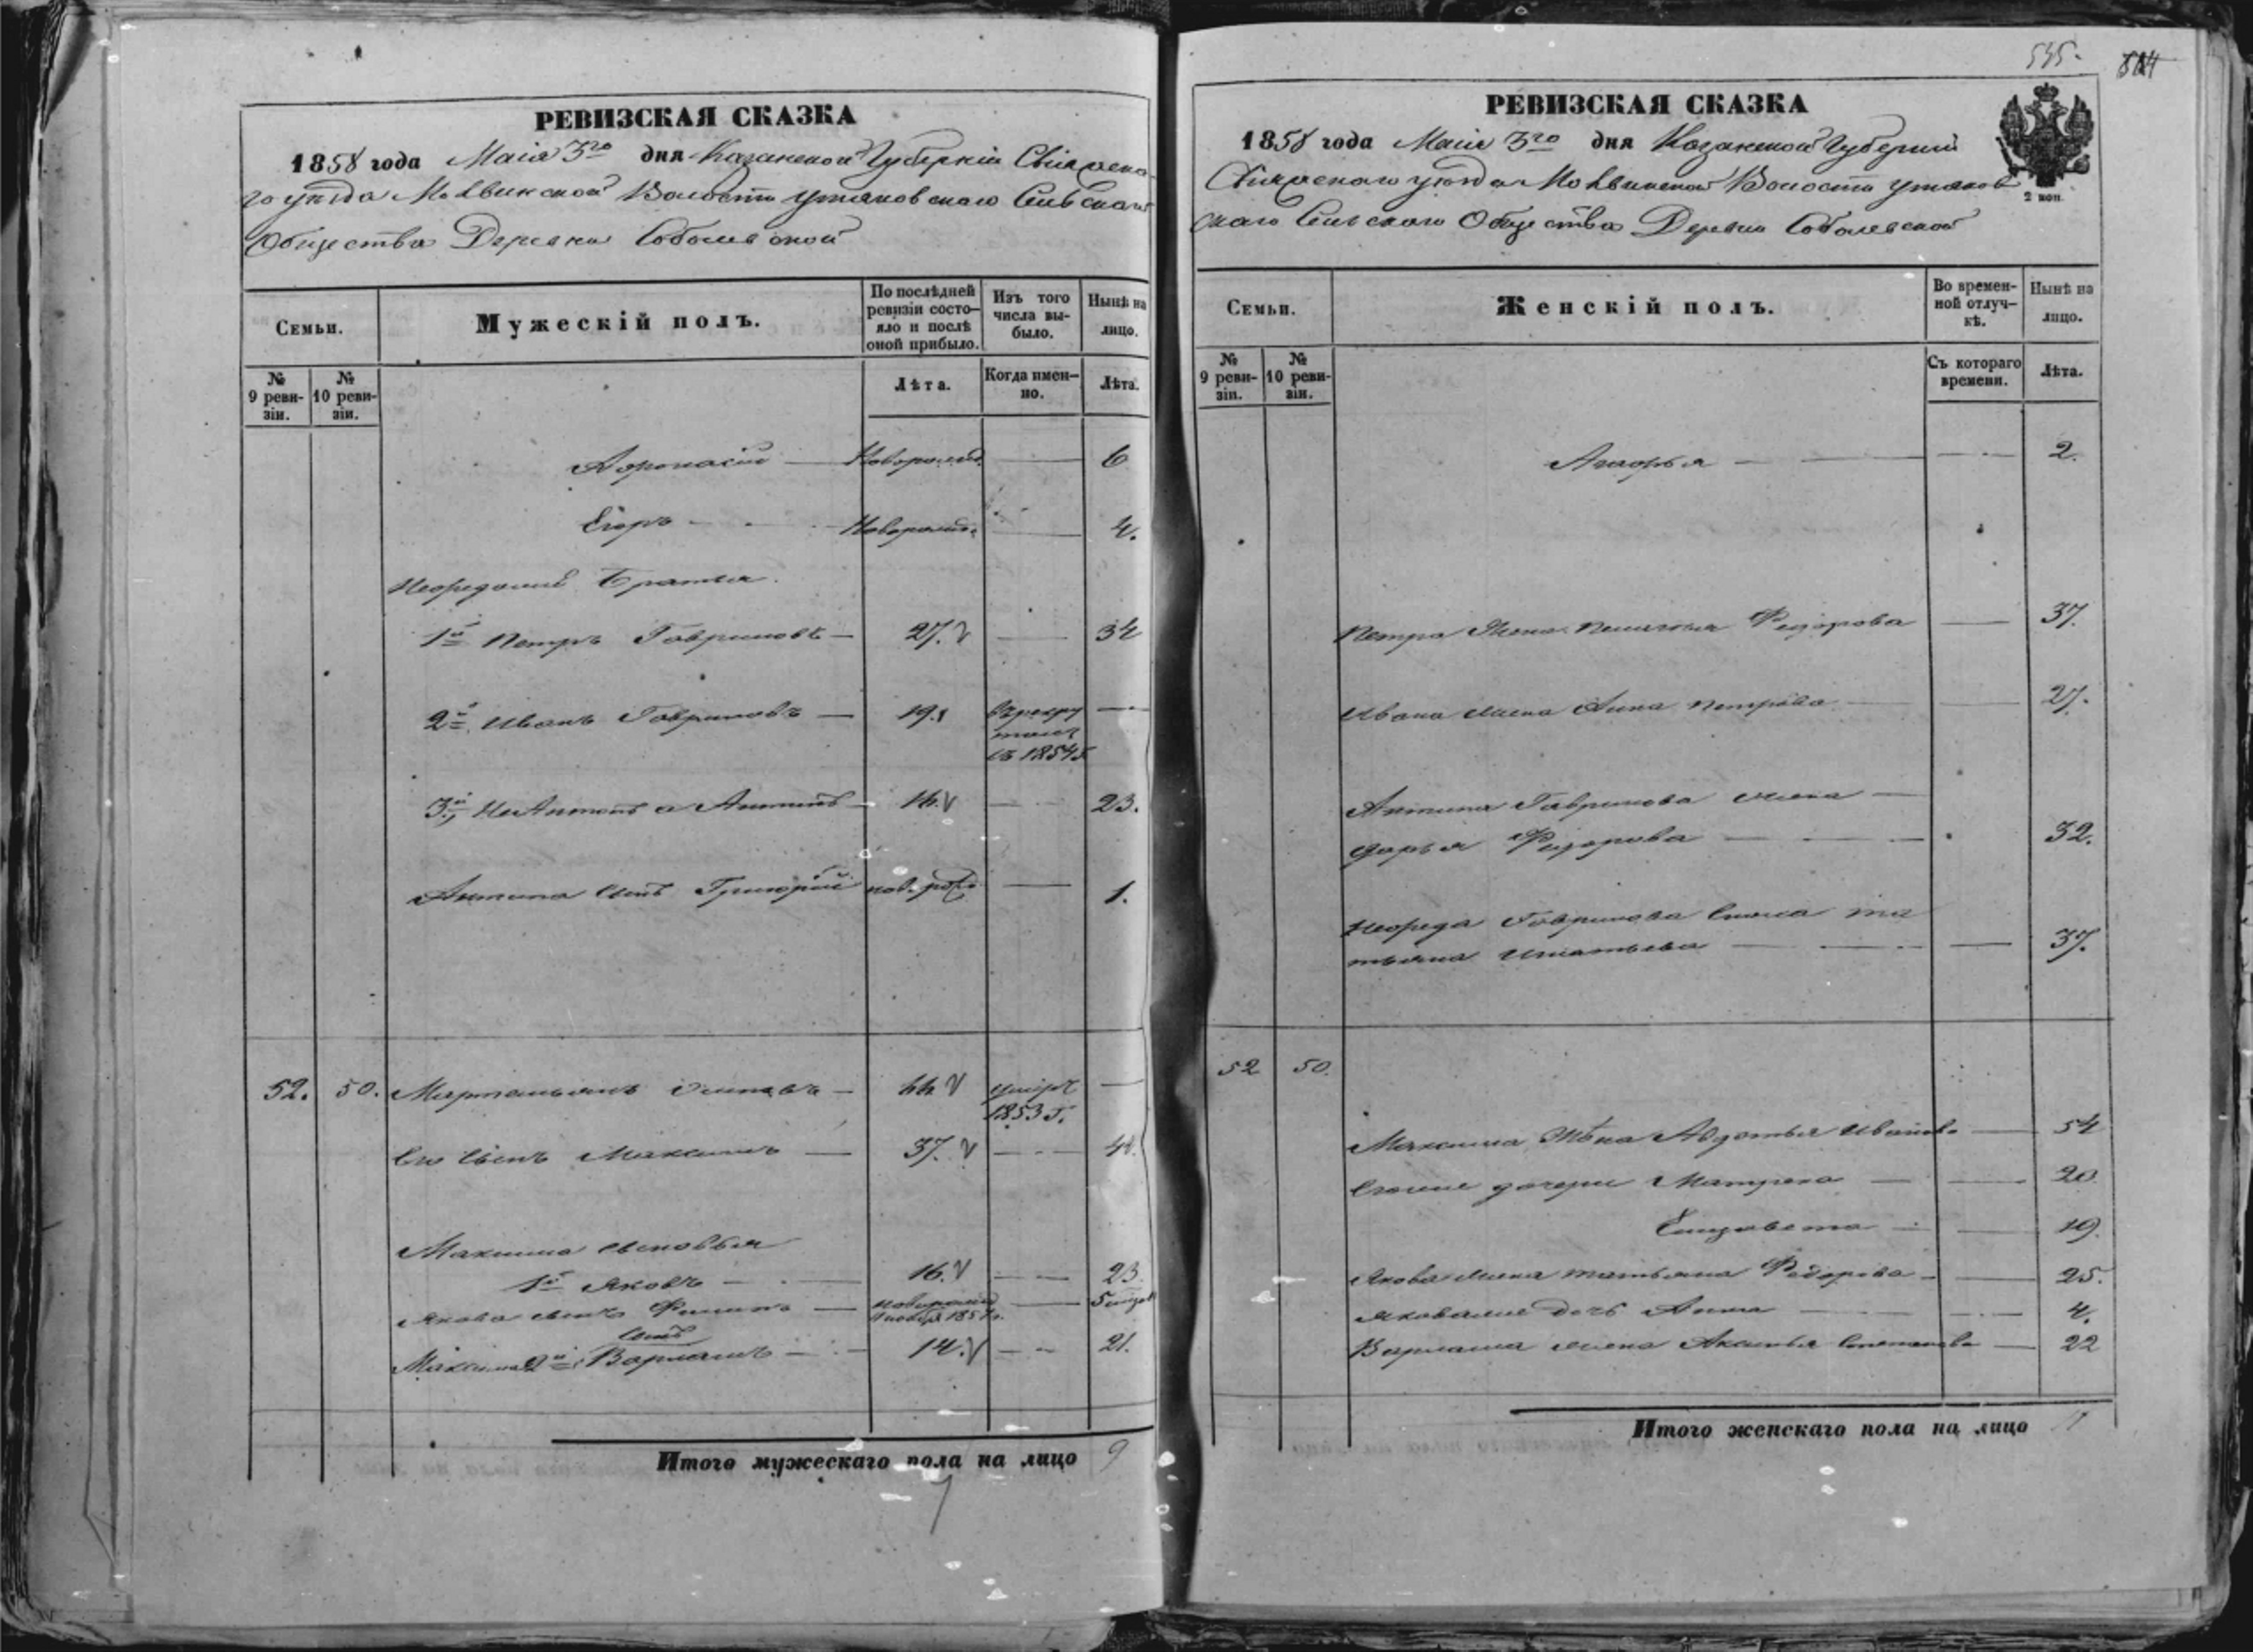 РЕВИЗСКАЯ СКАЗКА
1858 года Маія 3го дня Казанской Губерніи Свіяжска-
го уѣзда Моквинской Волости Утяковскаго Сельскаго
Общества Деревни Соболевской
Семьи.
Мужескій полъ.
По послѣдней ревизіи состо-
яло и послѣ
оной прибыло.
Изъ того
числа вы-
было.
Нынѣ на
лицо.
№
9 реви-
зіи.
№
10 реви-
зіи.
Лѣта.
Когда имен-
но.
Лѣта.
Афонасій — Новорожд. — 6
Егоръ — Новорожд. — 4.
Нефедовы Братья.
1й Петръ Гавриловъ — 27. — 34
2й Иванъ Гавриловъ — 19. въ рекру
тахъ
съ 1854 г.
3й, Не Антонъ а Антипъ — 16. — 23.
Антипа сынъ Григорій нов. рож. — 1.
52. 50. — 44 умеръ —
1853 г.
Его сынъ Максимъ — 37. —
Максима сыновья
1й Яковъ — 16. — 23.
Якова сынъ Филипъ — новорожд — 5 мѣсяц
ноября 1857 г.
сынъ
Максима 2й Варламъ — 14. — 21.
Итого мужескаго пола на лицо 9
535.
РЕВИЗСКАЯ СКАЗКА
1858 года Маія 3го дня Казанской Губерніи
Свіяжскаго уѣзда Моквинской Волости Утяков
скаго Сельскаго Общества Деревни Соболевской
2 коп.
Семьи.
Женскій полъ.
Во времен-
ной отлуч-
кѣ.
Нынѣ на
лицо.
№
9 реви-
зіи.
№
10 реви-
зіи.
Съ котораго
времени.
Лѣта.
— 2.
Петра Жена Пелагія Федорова — 37.
Ивана жена Анна Петрова — 27.
Антипа Гаврилова жена —
Дарья Федорова — 32.
Нефеда Гаврилова Жена Та
тьяна Игнатьева — 37.
52 50.
Максима Жена Авдотья Иванова — 54
дочери Матрена — 20.
Елизавета — 19.
Якова жена Татьяна Федорова — 25.
Яковалие дочь Анна — 4.
Варлама жена Аксинья Степанова — 22
Итого женскаго пола на лицо 11